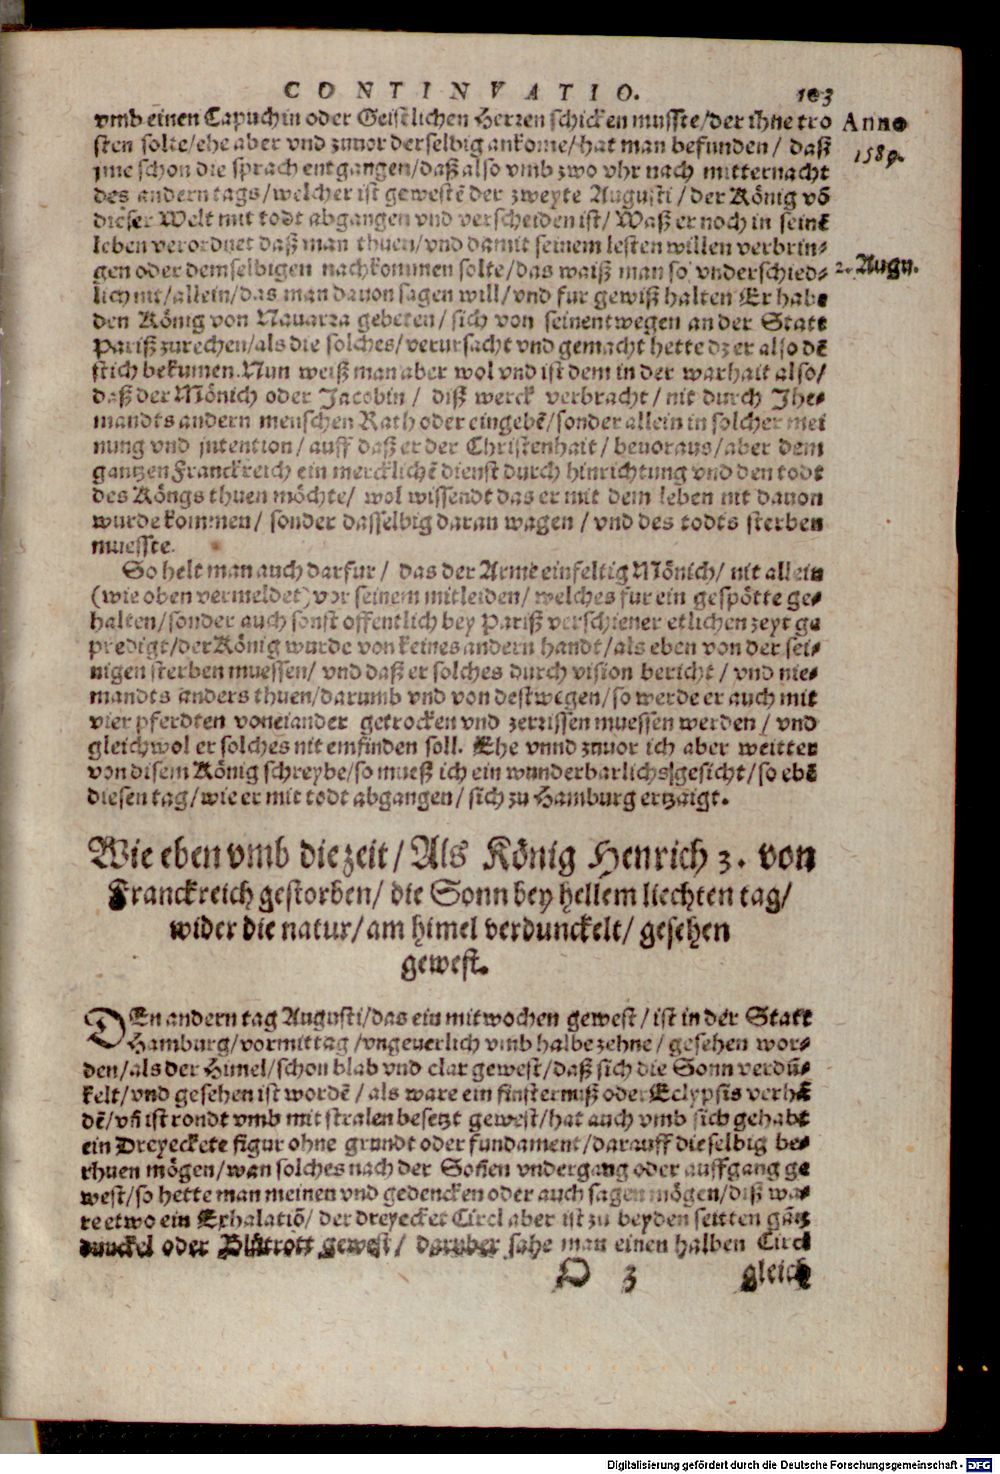 CONTINVATIO. 103
vmb einen Capuchin oder Geistlichen Herren schicken musste/der ihne tro
sten solte/ehe aber vnd zuuor derselbig ankome/hat man befunden/ daß
jme schon die sprach entgangen/daß also vmb zwo vhr nach mitternacht
des andern tags/welcher ist gewestē der zweyte Augusti/der König vō
dieser Welt mit todt abgangen vnd verscheiden ist/ Waß er noch in seinē
leben verordnet daß man thuen/vnd damit seinem lesten willen verbrin-
gen oder demselbigen nachkommen solte/das waiß man so vnderschied-
lich nit/allein/das man dauon sagen will/vnd fur gewiß halten Er habe
den König von Nauarra gebeten/sich von seinentwegen an der Statt
Pariß zurechen/als die solches/verursacht vnd gemacht hette dz er also dē
stich bekumen. Nun weiß man aber wol vnd ist dem in der warhait also/
daß der Mönich oder Jacobin/ diß werck verbracht/nit durch Jhe-
mandts andern menschen Rath oder eingebē/sonder allein in solcher mei
nung vnd jntention/auff daß er der Christenhait/beuoraus/aber dem
gantzen Franckreich ein mercklichē dienst durch hinrichtung vnd den todt
des Köngs thuen möchte/ wol wissendt das er mit dem leben nit dauon
wurde kommen/ sonder dasselbig daran wagen/vnd des todts sterben
muesste.
So helt man auch darfur/ das der Arme einfeltig Mönich/ nit allein
(wie oben vermeldet) vor seinem mitleiden/ welches fur ein gespötte ge-
halten/sonder auch sonst offentlich bey Pariß verschiener etlichen zeyt ge
predigt/der König wurde von keines andern handt/als eben von der sei-
nigen sterben muessen/ vnd daß er solches durch vision bericht/ vnd nie-
mandts anders thuen/darumb vnd von destwegen/so werde er auch mit
vier pferdten voneiander getrocken vnd zerrissen muessen werden/ vnd
gleichwol er solches nit emfinden soll. Ehe vnnd zuuor ich aber weitter
von disem König schreybe/so mueß ich ein wunderbarlichs gesicht/so ebē
diesen tag/wie er mit todt abgangen/sich zu Hamburg ertzaigt.
Anno
1589.
2. Augu.
Wie eben vmb die zeit/Als König Henrich 3. von
Franckreich gestorben/ die Sonn bey hellem liechten tag/
wider die natur/am himel verdunckelt/ gesehen
gewest.
DEn andern tag Augusti/das ein mitwochen gewest/ist in der Statt
Hamburg/vormittag/vngeuerlich vmb halbe zehne/gesehen wor-
den/als der Himel/schon blab vnd clar gewest/daß sich die Sonn verdū-
kelt/vnd gesehen ist wordē/als ware ein finsterniß oder Eclypsis verhā
dē/vñ ist rondt vmb mit stralen besetzt gewest/hat auch vmb sich gehabt
ein Dreyeckete figur ohne grundt oder fundament/darauff dieselbig be-
rhuen mögen/wan solches nach der Soñen vndergang oder auffgang ge
west/so hette man meinen vnd gedencken oder auch sagen mögen/diß wa-
re etwo ein Exhalatiō/ der dreyecket Circl aber ist zu beyden seitten gātz
dunckel oder Blůtrott gewest/ daruber sahe man einen halben Circl
O 3 gleich
Digitalisierung gefördert durch die Deutsche Forschungsgemeinschaft - DFG